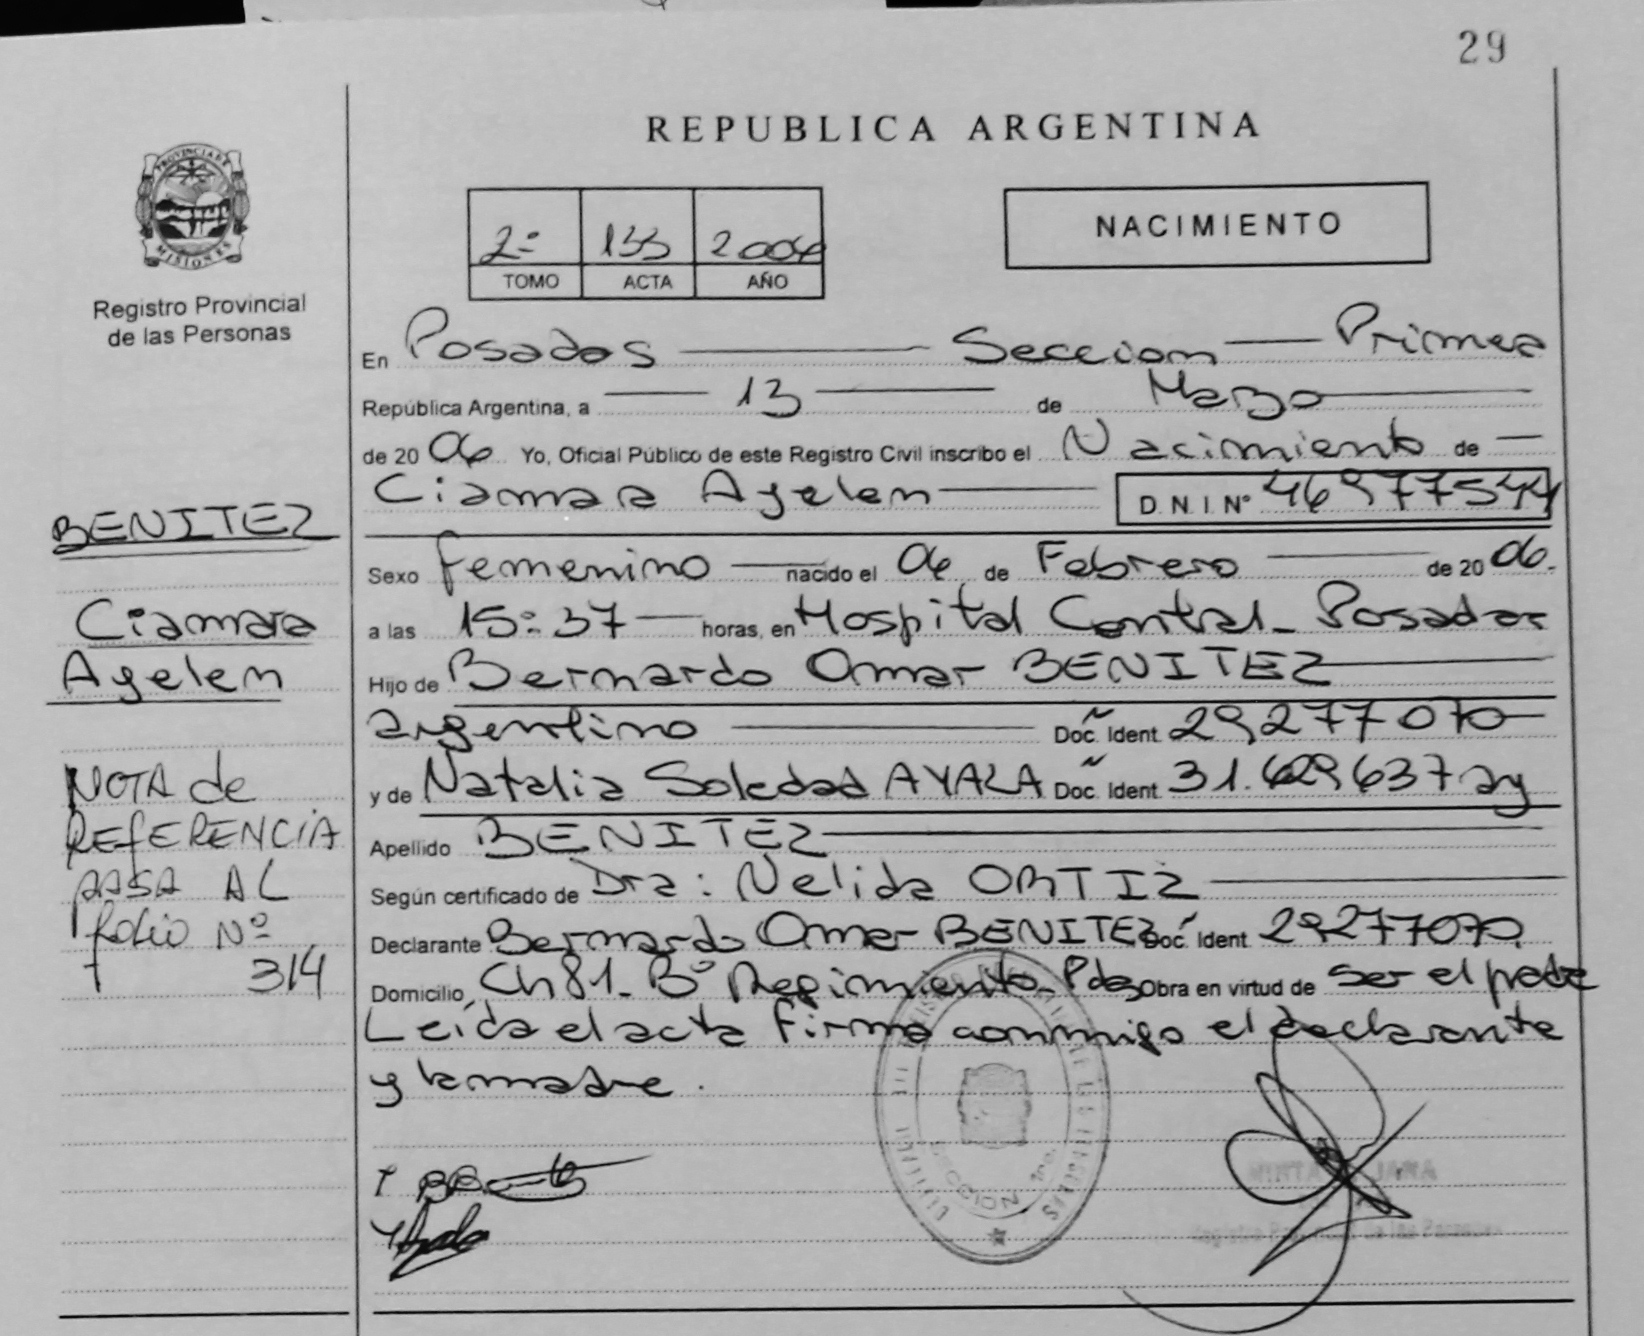 29
REPUBLICA ARGENTINA
PROVINCIA DE
MISIONES
Registro Provincial
de las Personas
2º 133 2006
TOMO ACTA AÑO
NACIMIENTO
En Posadas Seccion Primera
República Argentina, a 13 de Marzo
de 2006 Yo, Oficial Público de este Registro Civil inscribo el Nacimiento de
Ciamara Ayelen D.N.I. Nº 46977544
BENITEZ
Ciamara
Ayelen
Sexo femenino nacido el 06 de Febrero de 2006.
a las 15:37 horas, en Hospital Central_ Posadas
Hijo de Bernardo Omar BENITEZ
argentino Doc. Ident. 29277070
y de Natalia Soledad AYALA Doc. Ident. 31.629637 ay
Apellido BENITEZ
Según certificado de Dra: Nelida ORTIZ
Declarante Bernardo Omar BENITEZ Doc. Ident. 29277070
Domicilio Ch 81_ Bº Regimiento_ Pdas Obra en virtud de ser el padre
Leída el acta firma conmigo el declarante
y la madre.
NOTA de
REFERENCIA
PASA AL
folio Nº
314
SECCION 1ra.